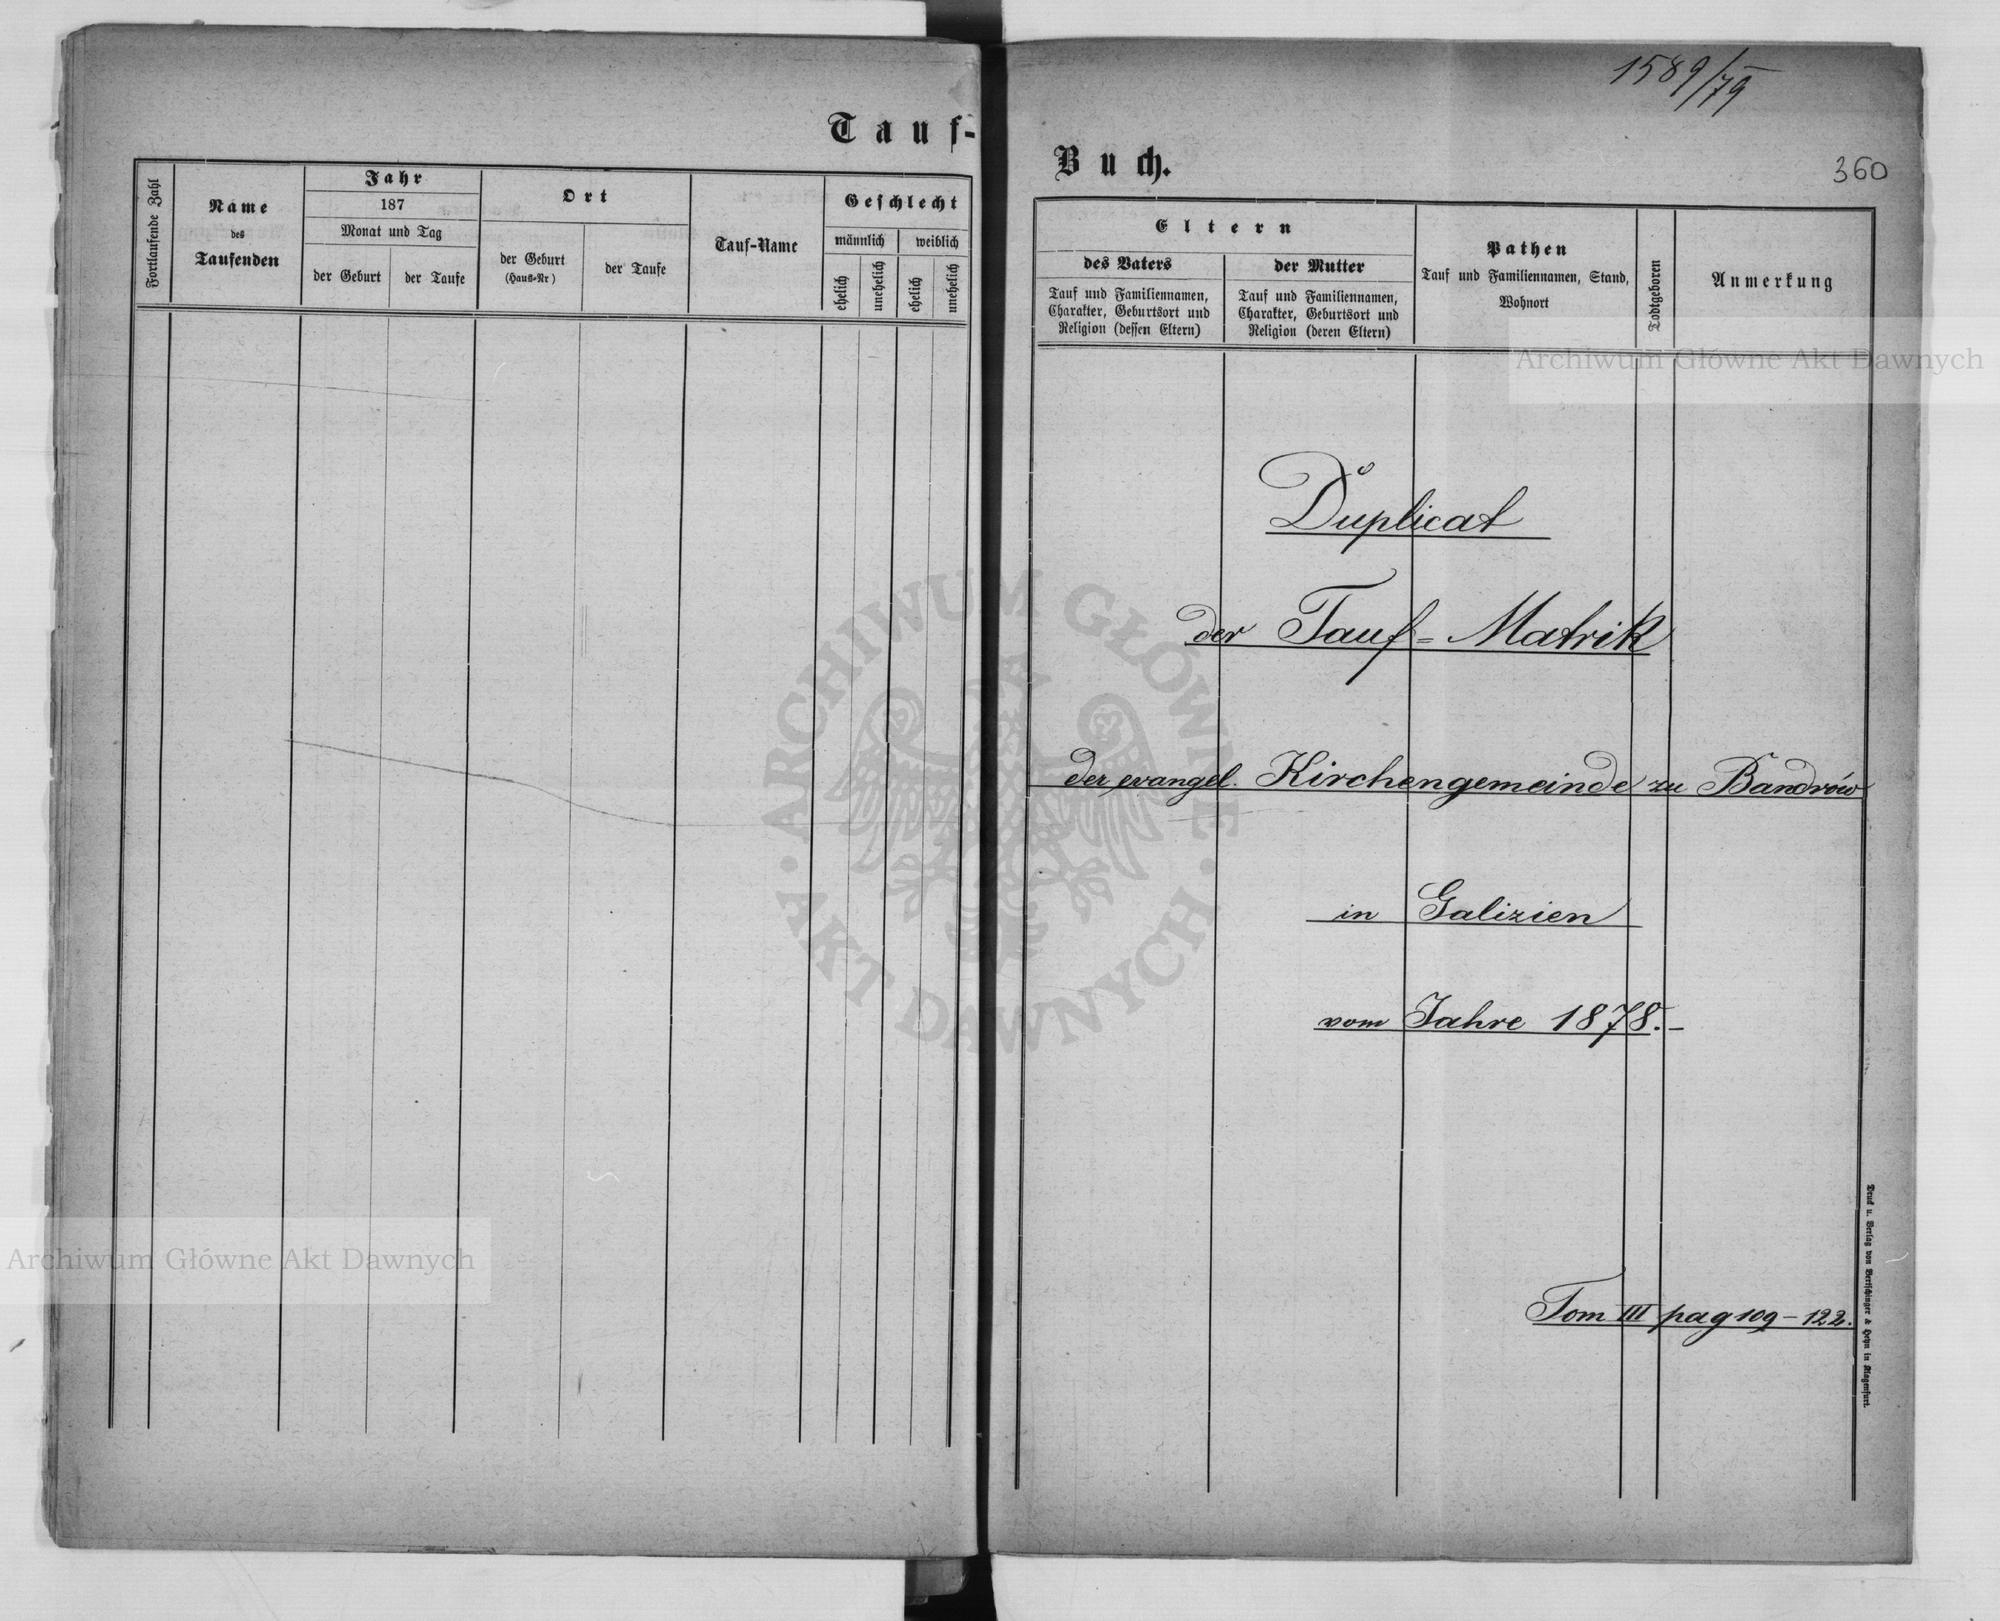 Tauf-
Fortlaufende Zahl
Name
des
Taufenden
Jahr
187
Monat und Tag
der Geburt
der Taufe
Ort
der Geburt
(Haus-Nr)
der Taufe
Tauf-Name
Geschlecht
männlich
weiblich
ehelich
unehelich
ehelich
unehelich
1589/79
Buch.
360
Eltern
des Vaters
Tauf und Familiennamen,
Charakter, Geburtsort und
Religion (dessen Eltern)
der Mutter
Tauf und Familiennamen,
Charakter, Geburtsort und
Religion (deren Eltern)
Pathen
Tauf und Familiennamen, Stand,
Wohnort
Todtgeboren
Anmerkung
Archiwum Główne Akt Dawnych
Duplicat
der Tauf=Matrik
der evangel. Kirchengemeinde zu Bandrów
in Galizien
vom Jahre 1878.-
Tom III pag 109-122.
Druck u. Verlag von Bertschinger & Heyn in Klagenfurt.
ARCHIWUM GŁÓWNE
AKT DAWNYCH
Archiwum Główne Akt Dawnych